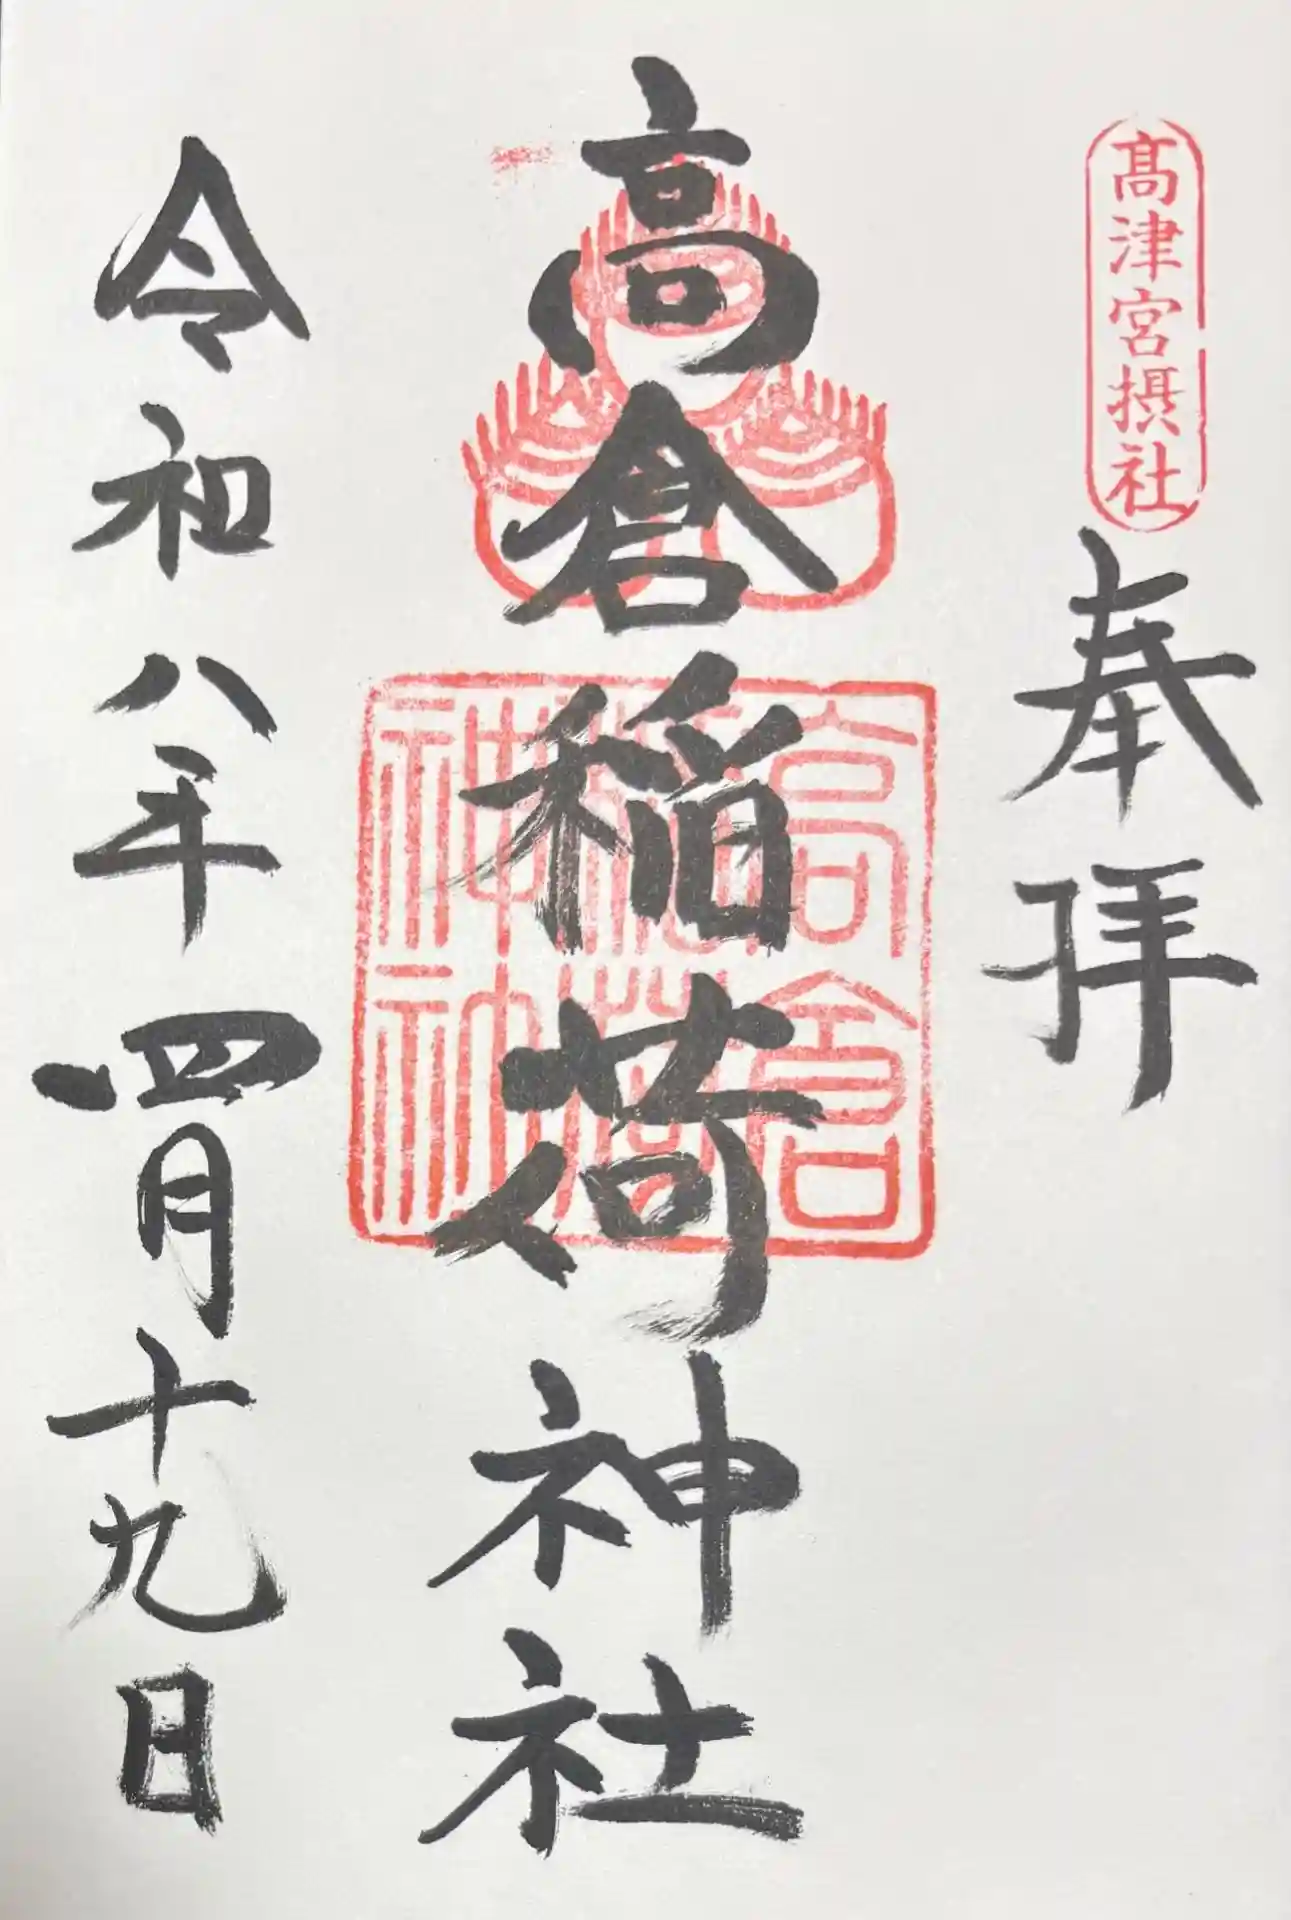 髙津宮摂社
奉拝
高倉稲荷神社
高倉稲荷神社
令和八年四月十九日